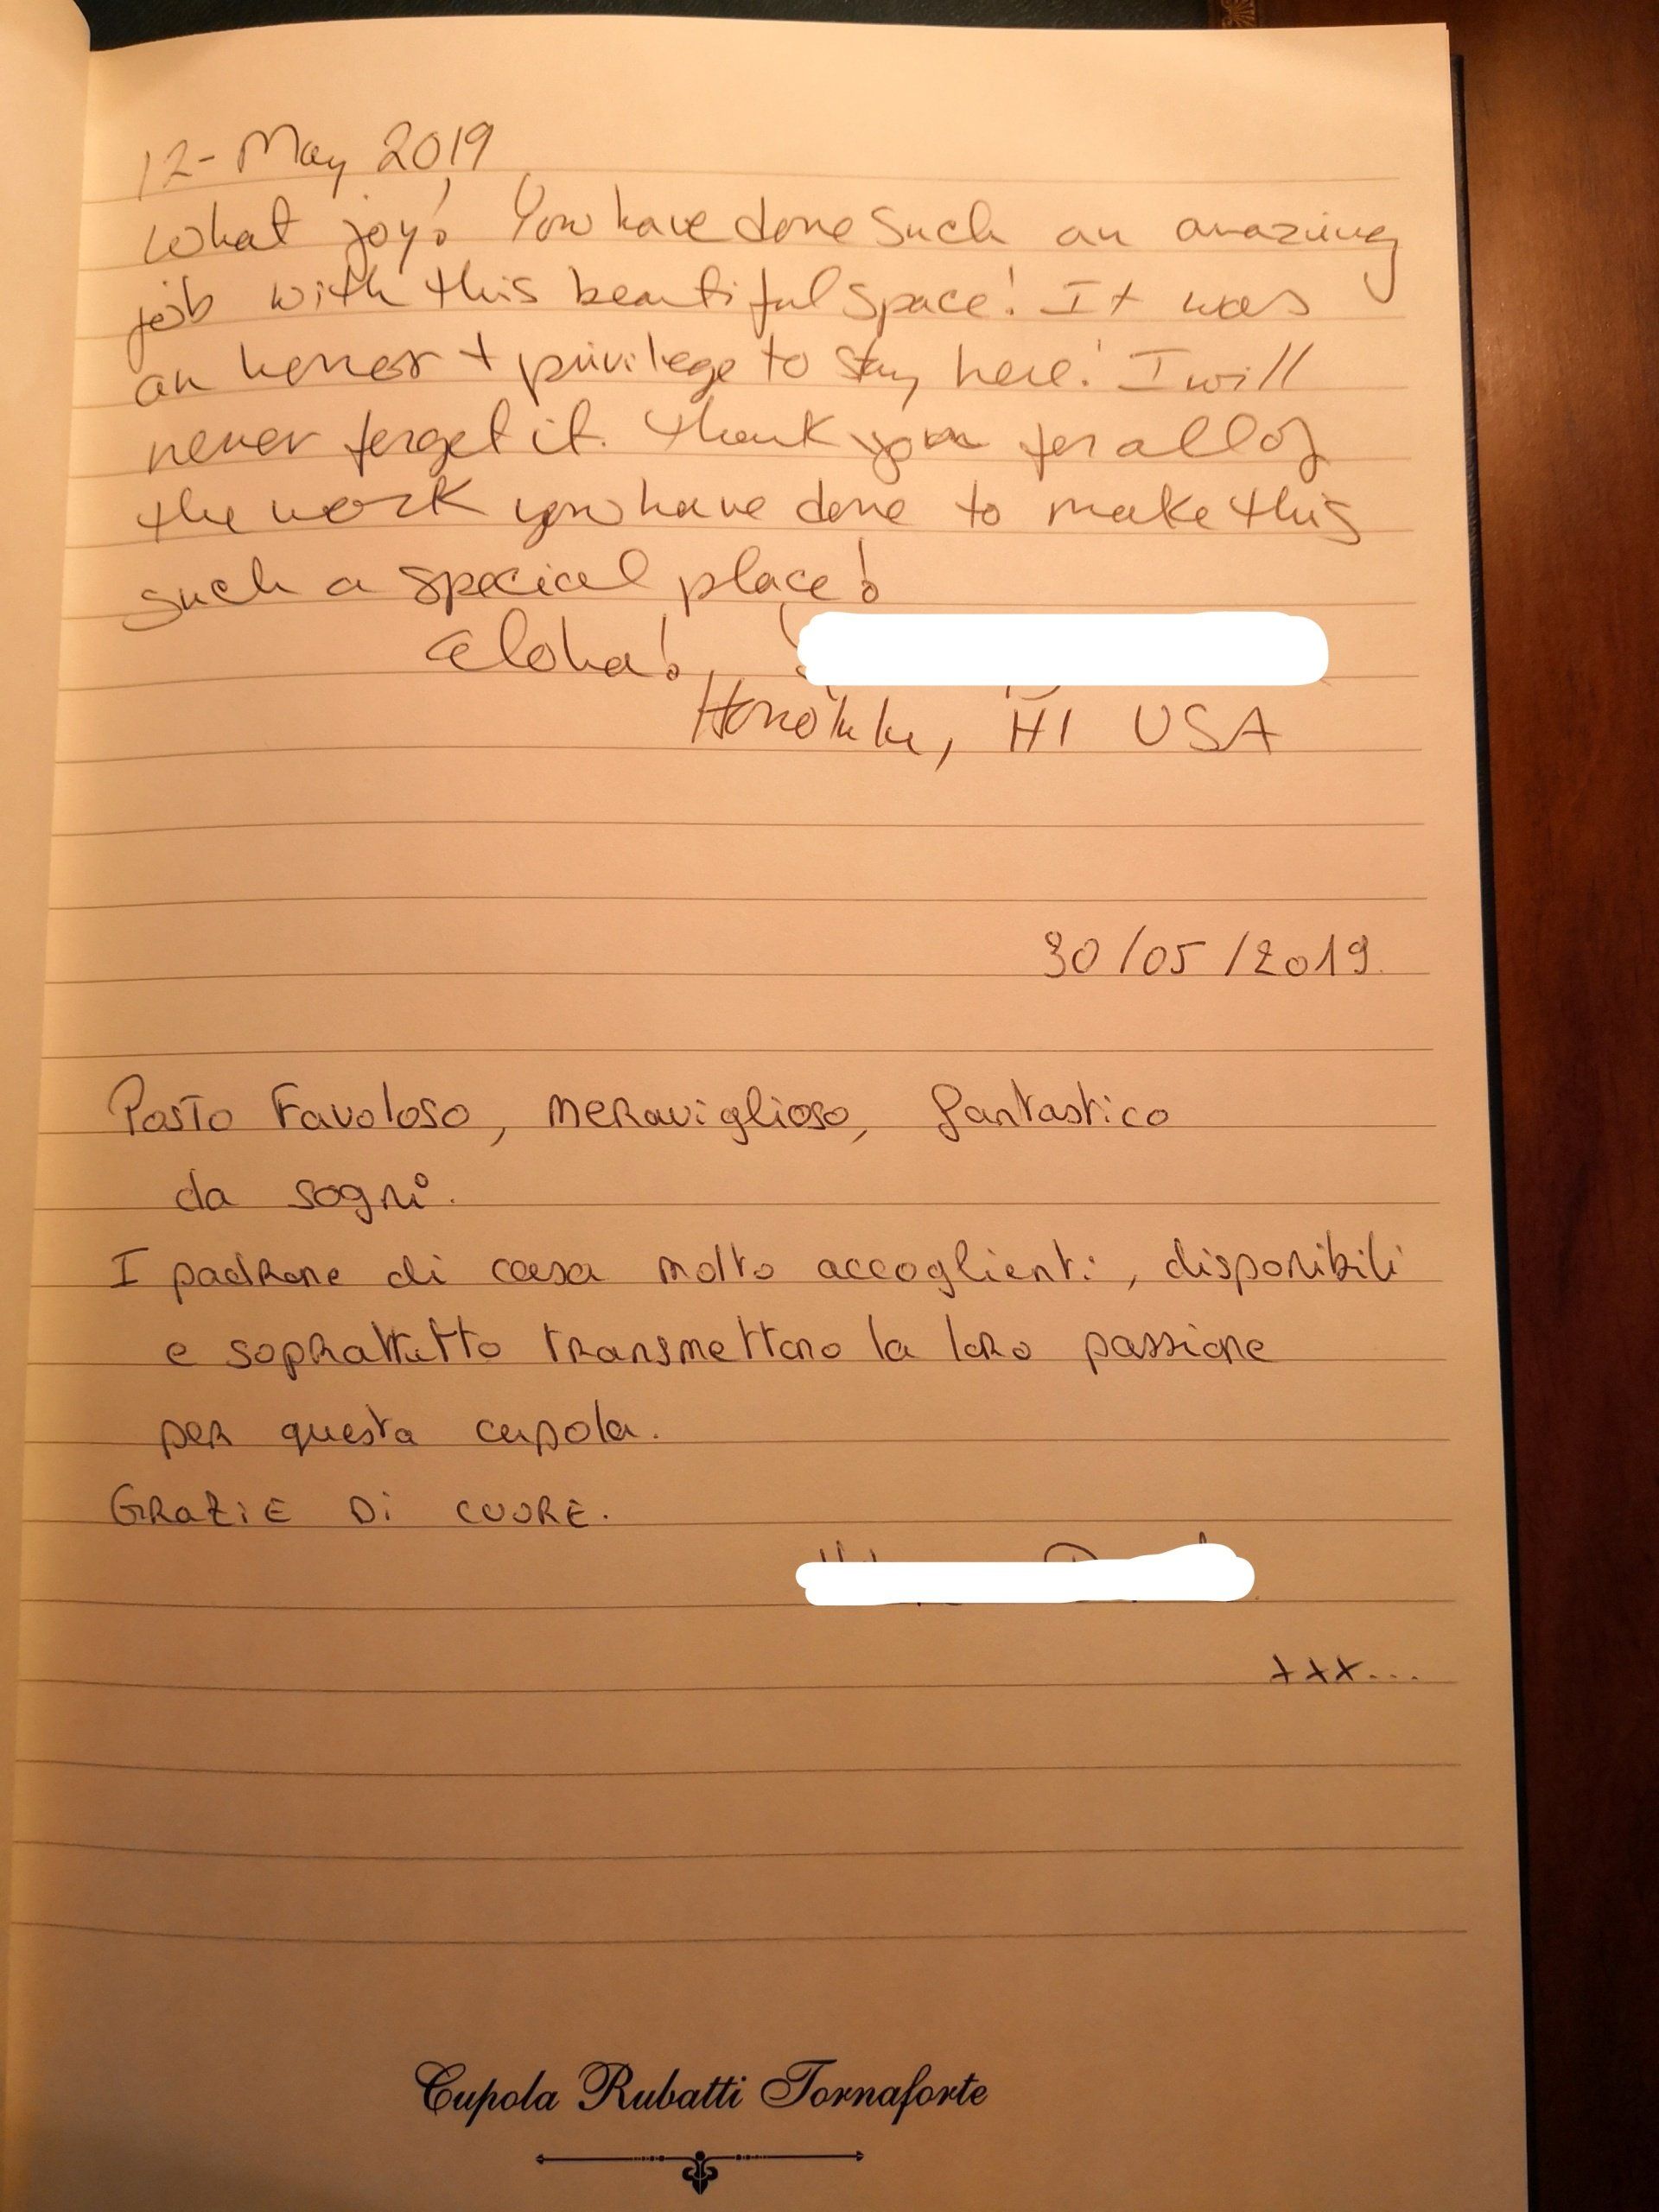 12- May 2019
What joy! You have done such an amazing
job with this beautiful space! It was
an honor + privilege to stay here! I will
never forget it. Thank you for all of
the work you have done to make this
such a special place!
Aloha!,
Honolulu, HI USA
30/05/2019.
Posto Favoloso, meraviglioso, fantastico
da sogni.
I padrone di casa molto accoglienti, disponibili
e soprattutto transmettono la loro passione
per questa cupola.
GRAZiE Di CUORE.
xxx...
Cupola Rubatti Tornaforte